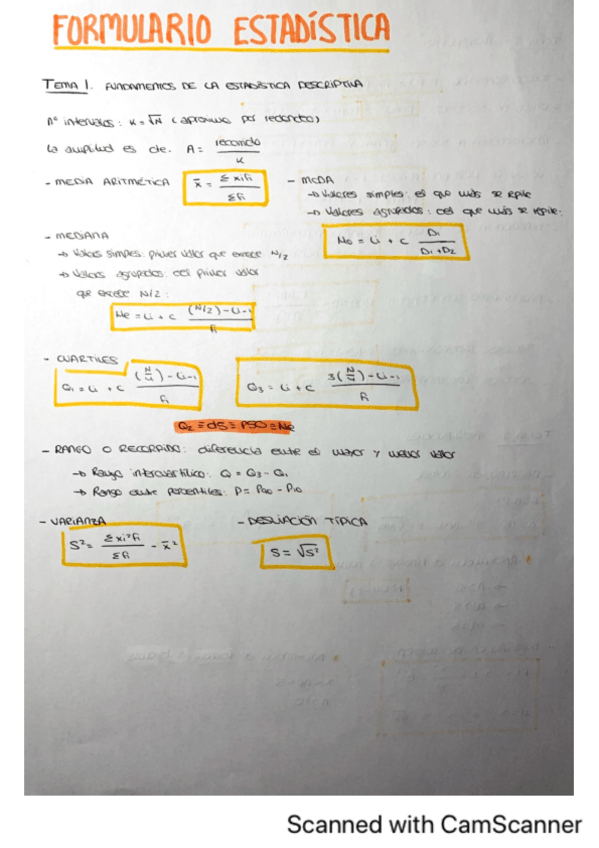 FORMULARIO ESTADÍSTICA
TEMA 1. FUNDAMENTOS DE LA ESTADÍSTICA DESCRIPTIVA
nº intervalos: K = √N (aproximo por redondeo)
La amplitud es de: A = recorrido / K
- MEDIA ARITMÉTICA x̄ = Σxifi / Σfi
- MODA
→ Valores simples: el que más se repite
→ Valores agrupados: el que más se repite:
Mo = Li + C D1 / D1+D2
- MEDIANA
→ Valores simples: primer valor que excede N/2
→ Valores agrupados: el primer valor
que excede N/2:
Me = Li + C (N/2) - Li-1 / fi
- CUARTILES
Q1 = Li + C (N/4) - Li-1 / fi
Q3 = Li + C 3(N/4) - Li-1 / fi
Q2 ≡ d5 ≡ P50 ≡ Me
- RANGO O RECORRIDO: diferencia entre el mayor y menor valor
→ Rango intercuartílico: Q = Q3 - Q1
→ Rango entre percentiles: P = P90 - P10
- VARIANZA
S² = Σxi²fi / Σfi - x̄²
- DESVIACIÓN TÍPICA
S = √S²
Scanned with CamScanner